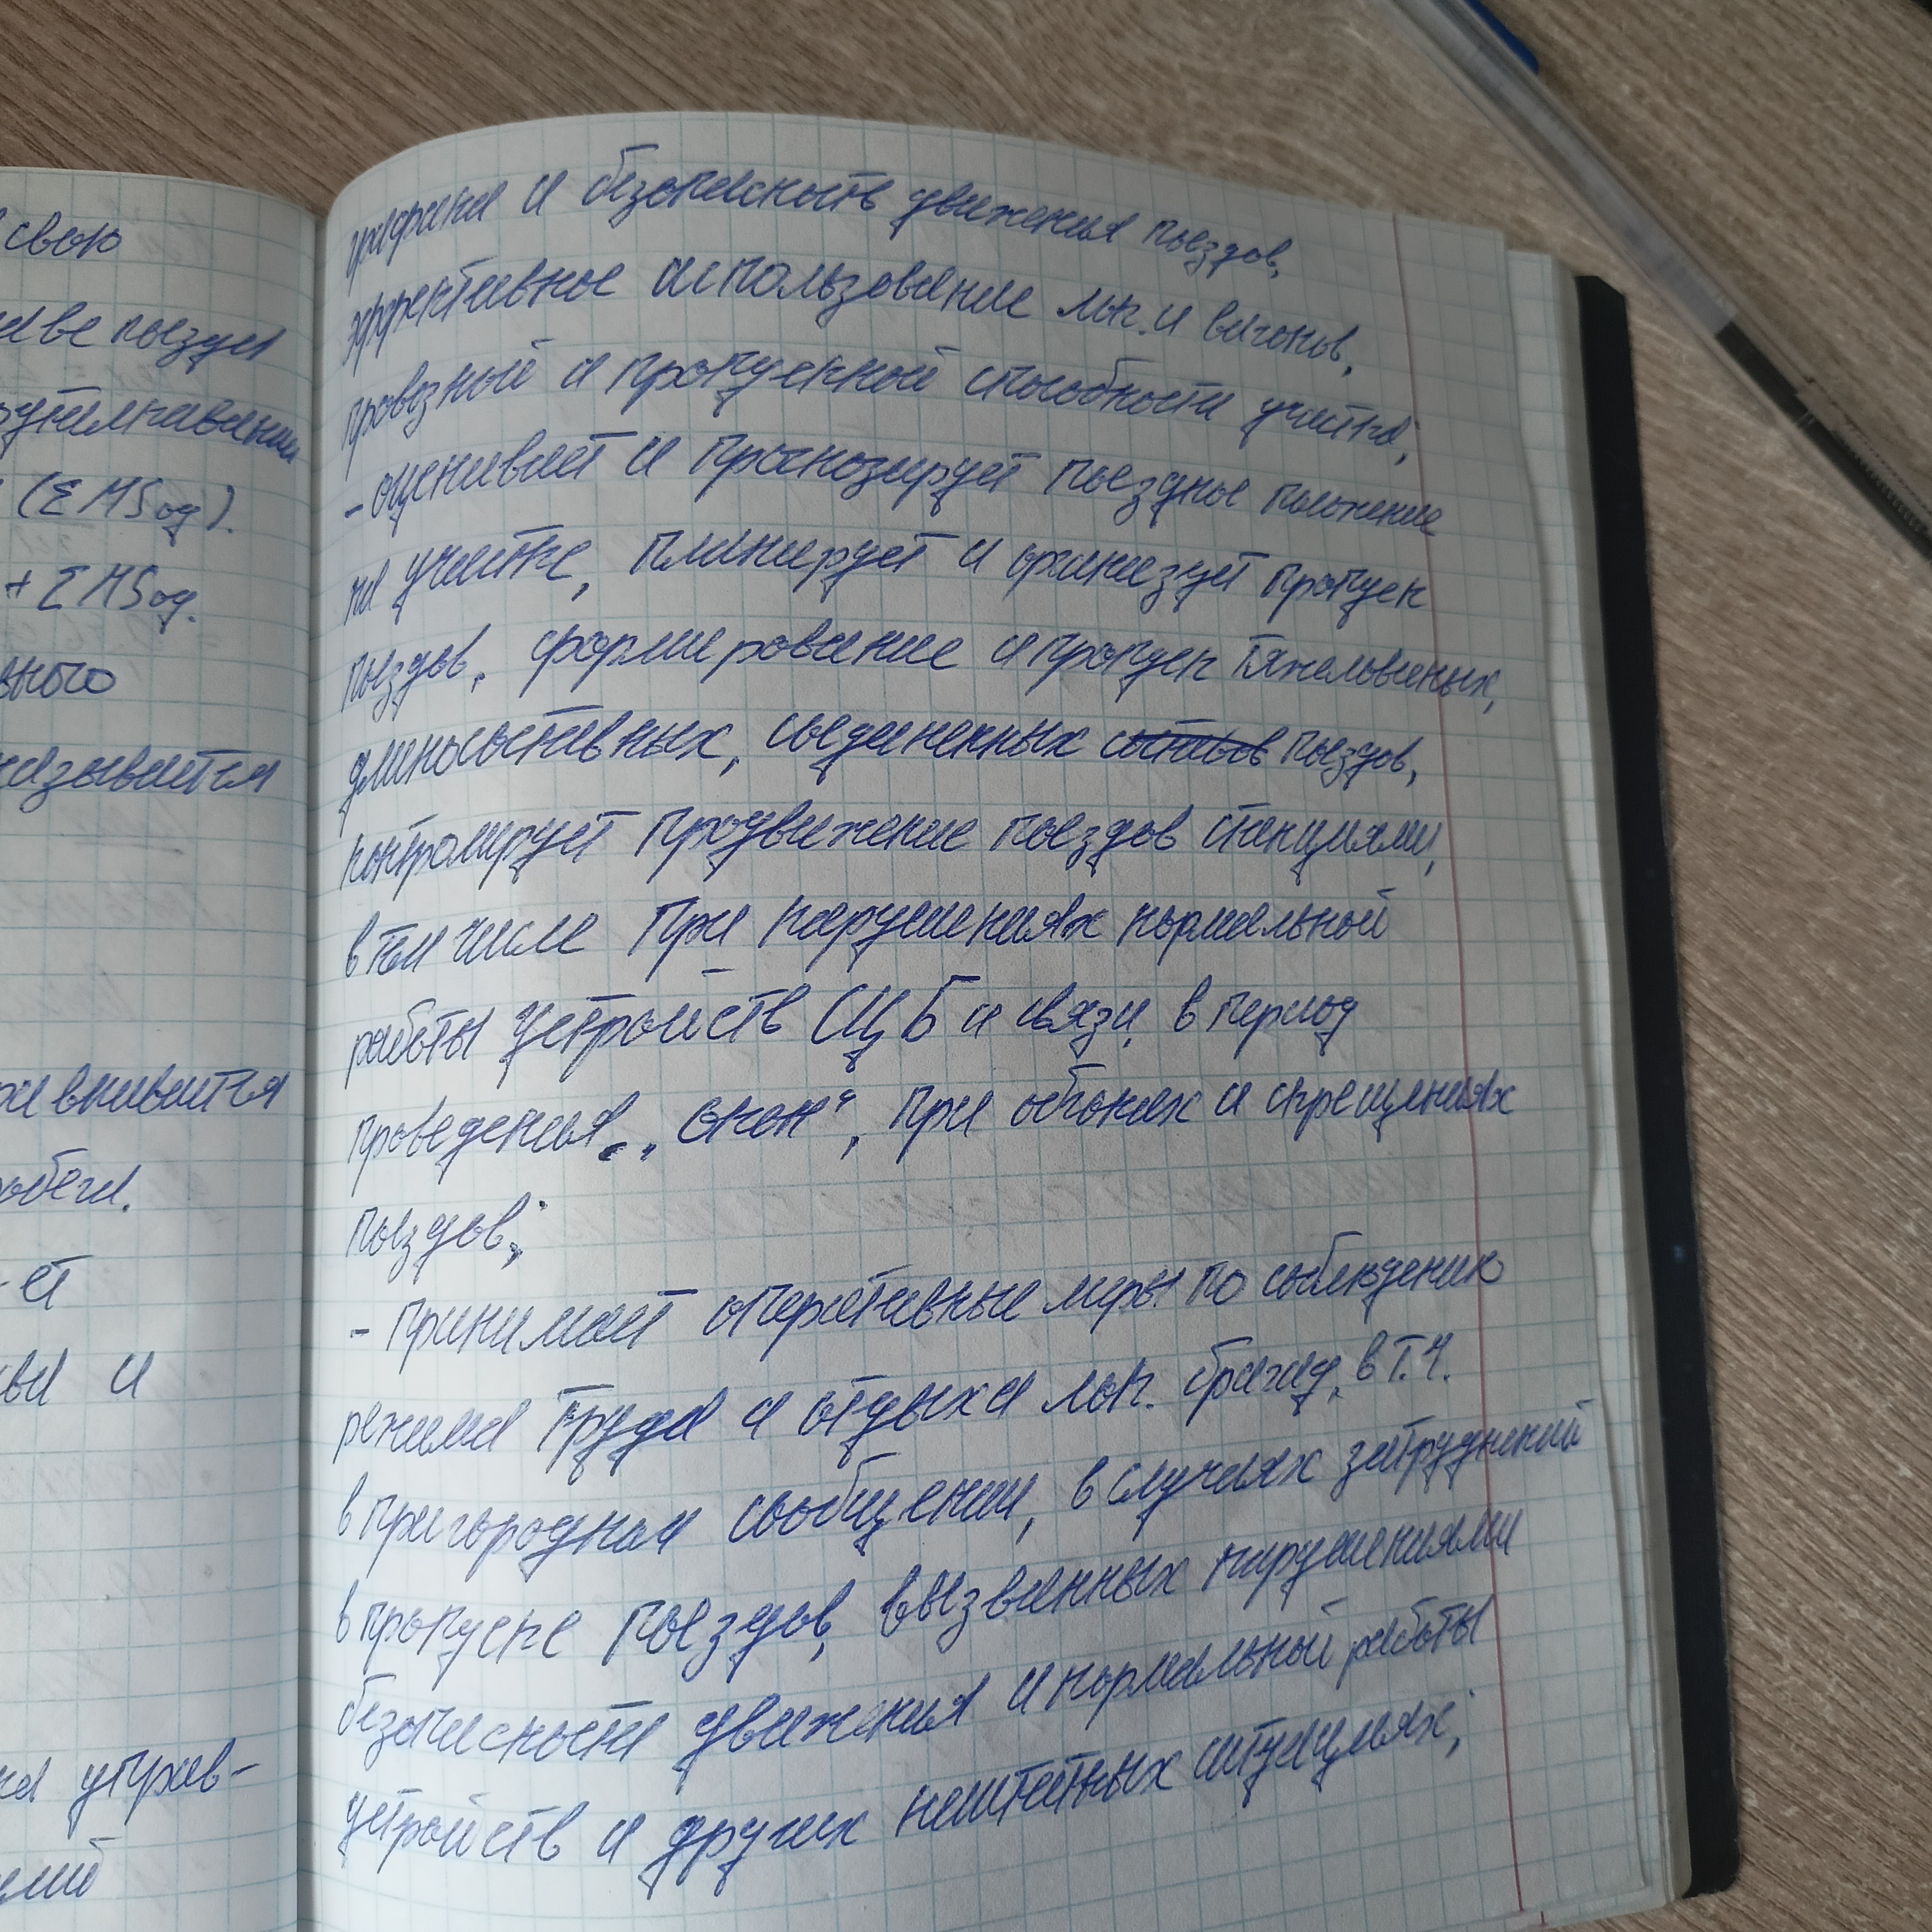 свою
поезда
(ΣMSод).
+ ΣMSод.
и
графика и безопасность движения поездов,
эффективное использование лок. и вагонов,
провозной и пропускной способности участка;
- оценивает и прогнозирует поездное положение
на участке, планирует и организует пропуск
поездов, формирование и пропуск тяжеловесных,
длинносоставных, соединенных составов поездов,
контролирует продвижение поездов станциями,
в том числе при нарушениях нормальной
работы устройств СЦБ и связи, в период
проведения „окон“, при обгонах и скрещениях
поездов;
- принимает оперативные меры по соблюдению
режима труда и отдыха лок. бригад, в т.ч.
в пригородном сообщении, в случаях затруднений
в пропуске поездов, вызванных нарушениями
безопасности движения и нормальной работы
устройств и других нештатных ситуациях;